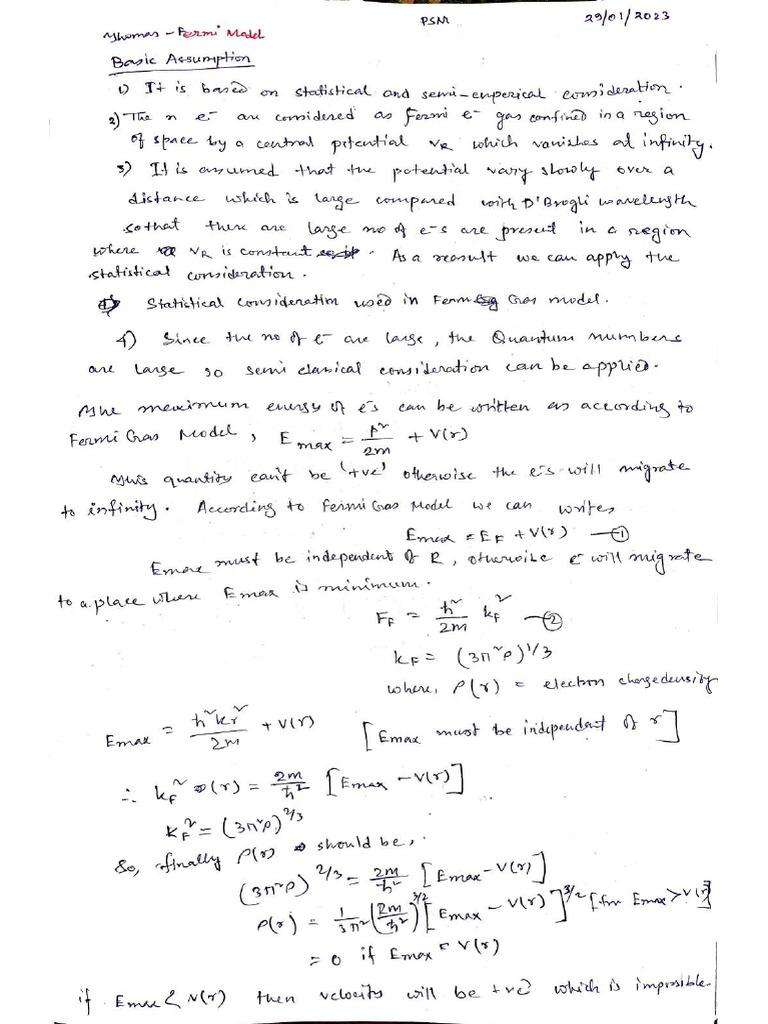 PSM 29/01/2023
Thomas - Fermi Model
Basic Assumption
1) It is based on statistical and semi-emperical consideration.
2) The n e⁻ are considered as Fermi e⁻ gas confined in a region
of space by a central potential V_R which vanishes at infinity.
3) It is assumed that the potential vary slowly over a
distance which is large compared with D'Brogli wavelength
so that there are large no of e⁻s are present in a region
where V_R is constant. As a reasult we can apply the
statistical consideration.
Statistical consideration used in Fermi Gas model.
4) Since the no of e⁻ are large, the Quantum numbers
are large so semi classical consideration can be applied.
The maximum energy of e⁻s can be written as according to
Fermi Gas Model, E max = p²/2m + V(r)
This quantity can't be '+ve' otherwise the e⁻s will migrate
to infinity. According to Fermi Gas Model we can writes,
Emax = E_F + V(r) —①
Emax must be independent of R, otherwise e⁻ will migrate
to a place where Emax is minimum.
F_F = ħ²/2m k_F² —②
k_F = (3π²ρ)^1/3
where, ρ(r) = electron chargedensity
Emax = ħ²k_F²/2m + V(r) [Emax must be independent of r]
∴ k_F²(r) = 2m/ħ² [Emax - V(r)]
K_F² = (3π²ρ)^2/3
So, finally ρ(r) should be,
(3π²ρ)^2/3 = 2m/ħ² [Emax - V(r)]
ρ(r) = 1/3π² (2m/ħ²)^3/2 [Emax - V(r)]^3/2 [for Emax > V(r)]
= 0 if Emax < V(r)
if Emax < V(r) then velocity will be +ve which is impossible.